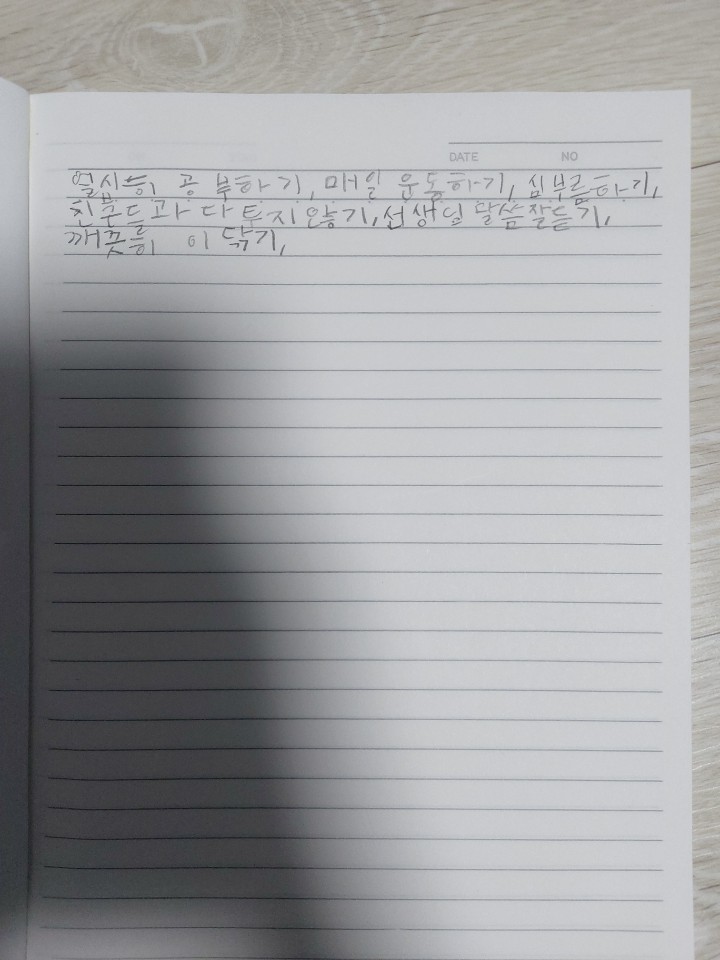 DATE NO
열심히 공부하기, 매일 운동하기, 심부름하기,
친구들과 다투지 않기, 선생님 말씀 잘 듣기,
깨끗히 이 닦기,